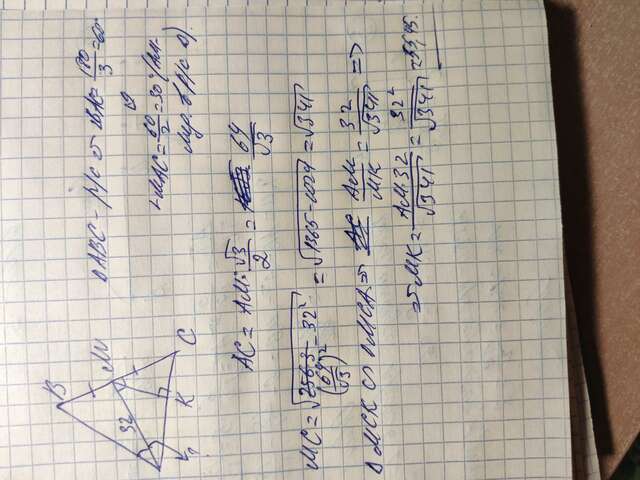 B
M
32
C
K
?
△ABC - р/с ⇒ ∠BAC = 180/3 = 60°
∠MAC = 60/2 = 30° (AM -
р/с △)
AC = AM : √3/2 = 64/√3
MC = √((64/√3)² - 32²) = √(1365 - 1024) = √341
△MCK ∽ △MCA ⇒ AM/MK = 32/√341 ⇒
⇒ MK = AM·32/√341 = 32²/√341 = 55,45